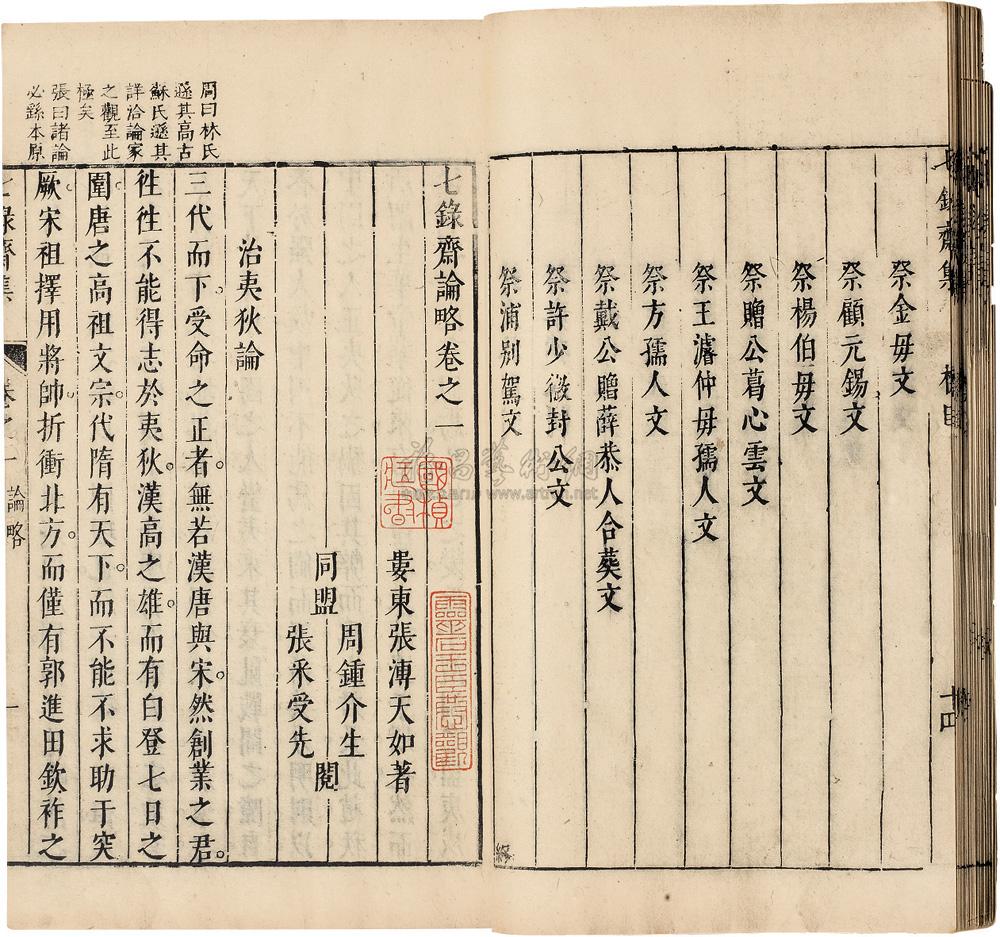 祭金母文
祭顧元錫文
祭楊伯母文
祭贈公葛心雲文
祭王濬仲母孺人文
祭方孺人文
祭戴公贈薛恭人合葬文
祭許少微封公文
祭浦別駕文
終
七錄齋集
目
十四
七錄齋論畧卷之一
婁東張溥天如著
同盟
周鍾介生
張采受先
閱
治夷狄論
三代而下。受命之正者。無若漢唐與宋。然創業之君。
徃徃不能得志於夷狄。漢高之雄。而有白登七日之
圍。唐之高祖文宗。代隋有天下。而不能不求助于突
厥。宋祖擇用將帥。折衝北方。而僅有郭進田欽祚之
周曰林氏
遜其高古
蘇氏遜其
詳洽論家
之觀至此
極矣
張曰諸論
必繇本原
七錄齋集
卷之一
論略
一
www.artfoxi.net